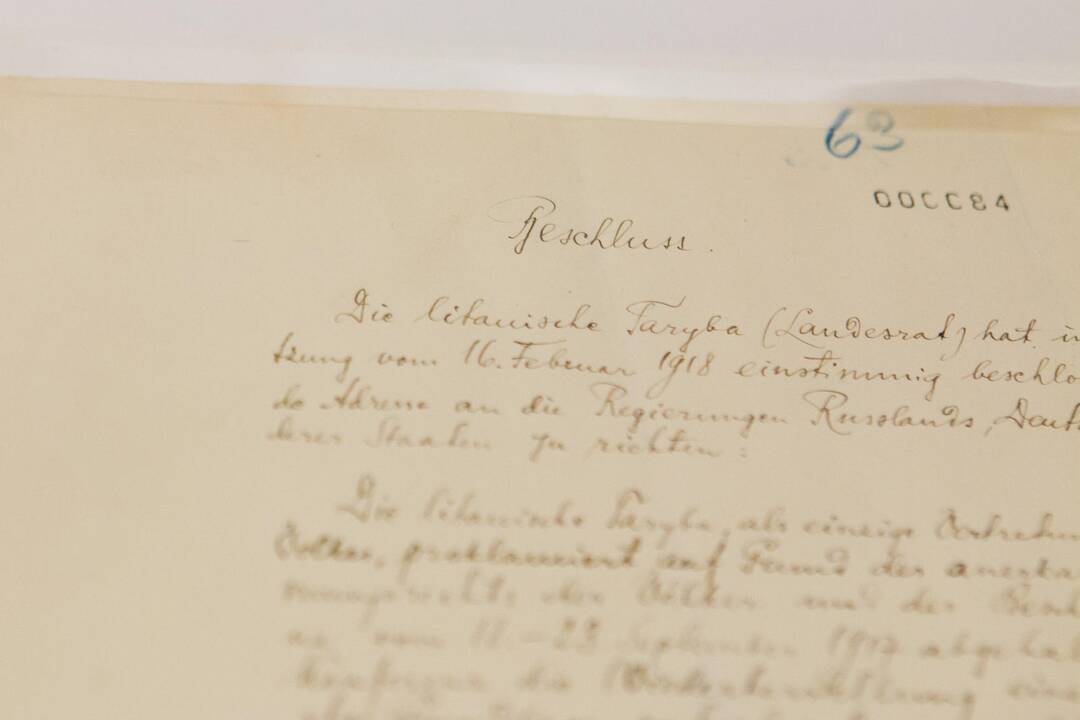 63
00CC84
Beschluss.
Die litauische Taryba (Landesrat) hat in
tzung vom 16. Februar 1918 einstimmig beschlo
de Adresse an die Regierungen Russlands, Deuts
derer Staaten zu richten:
Die litauische Taryba, als einzige Vertretun
Volkes, proklamiert auf Grund des anerka
mungsrechts der Völker und des Beschl
vom 18.–23. September 1917 abgehal
Konferenz die